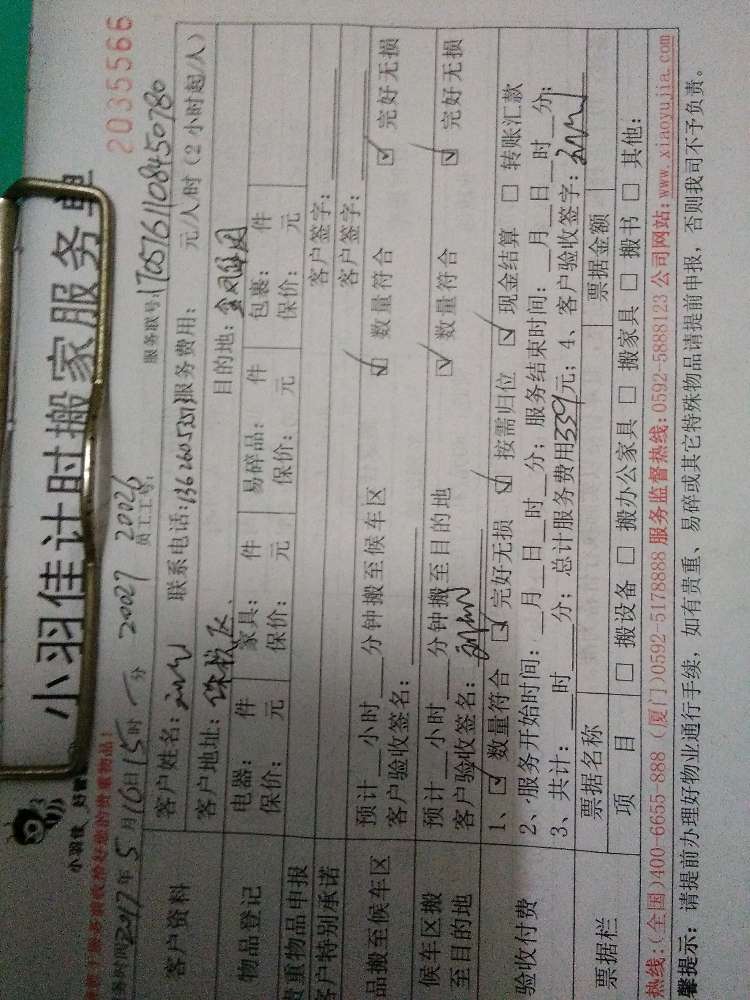 小羽佳计时搬家服务单
2035566
小羽佳 好管
务时间2017年5月16日15时一分 20027 20026 员工工号: 服务联号:1705761108450780
客户资料
客户姓名: 联系电话:13626053513服务费用: 元/人/时(2小时起/人)
客户地址: 目的地:
物品登记
电器: 件 家具: 件 易碎品: 件 包裹: 件
保价: 元 保价: 元 保价: 元 保价: 元
贵重物品申报 客户签字:
客户特别承诺 客户签字:
品搬至候车区
预计__小时__分钟搬至候车区 ☑ 数量符合 ☑ 完好无损
客户验收签名:
候车区搬至目的地
预计__小时__分钟搬至目的地 ☑ 数量符合 ☑ 完好无损
客户验收签名:
验收付费
1、☑ 数量符合 ☑ 完好无损 ☑ 按需归位 ☑ 现金结算 □ 转账汇款
2、服务开始时间:__月__日__时__分;服务结束时间:__月__日__时__分;
3、共计:__时__分;总计服务费用339元;4、客户验收签字:
票据栏
票据名称 票据金额
项 目 □ 搬设备 □ 搬办公家具 □ 搬家具 □ 搬书 □ 其他:
热线:(全国)400-6655-888 (厦门)0592-5178888 服务监督热线:0592-5888123 公司网站:www.xiaoyujia.com
馨提示:请提前办理好物业通行手续,如有贵重、易碎或其它特殊物品请提前申报,否则我司不予负责。